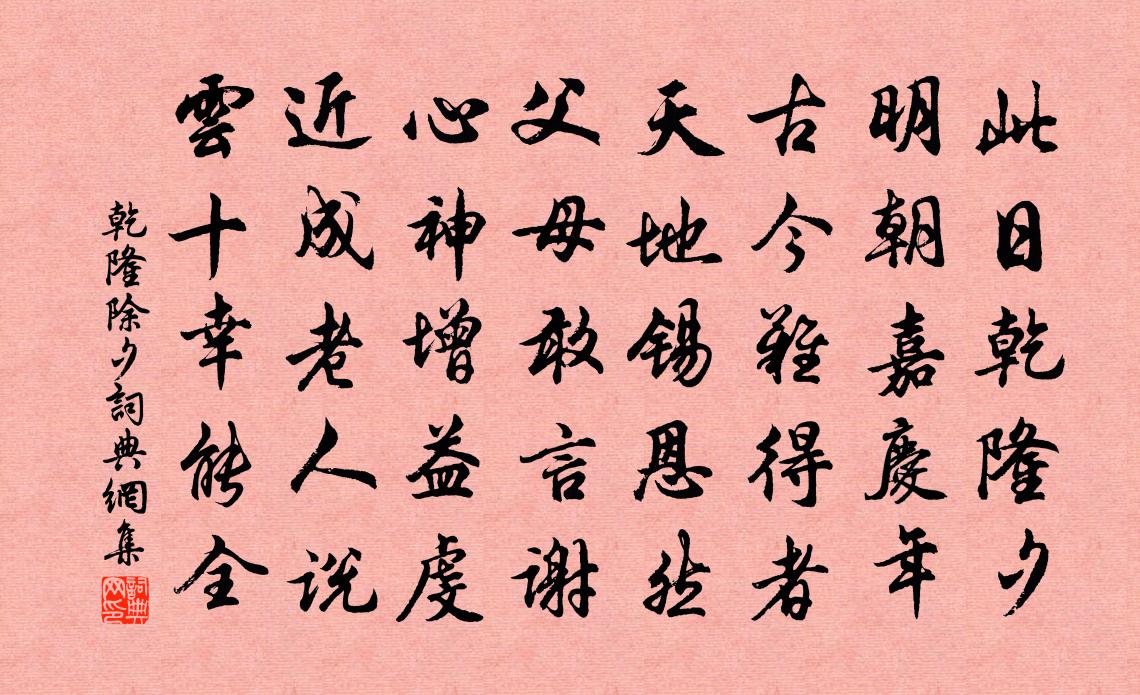 此日乾隆夕
明朝嘉慶年
古今難得者
天地錫恩然
父母敢言謝
心神增益虔
近成老人説
雲十幸能全
乾隆除夕詞典網集
詞典网印